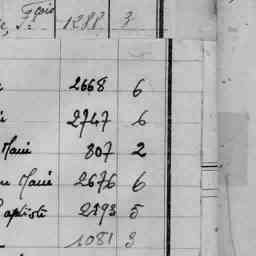 Fçois 1288 3
2668 6
2747 6
Marie 307 2
Marie 2676 6
Baptiste 2893 5
1081 3